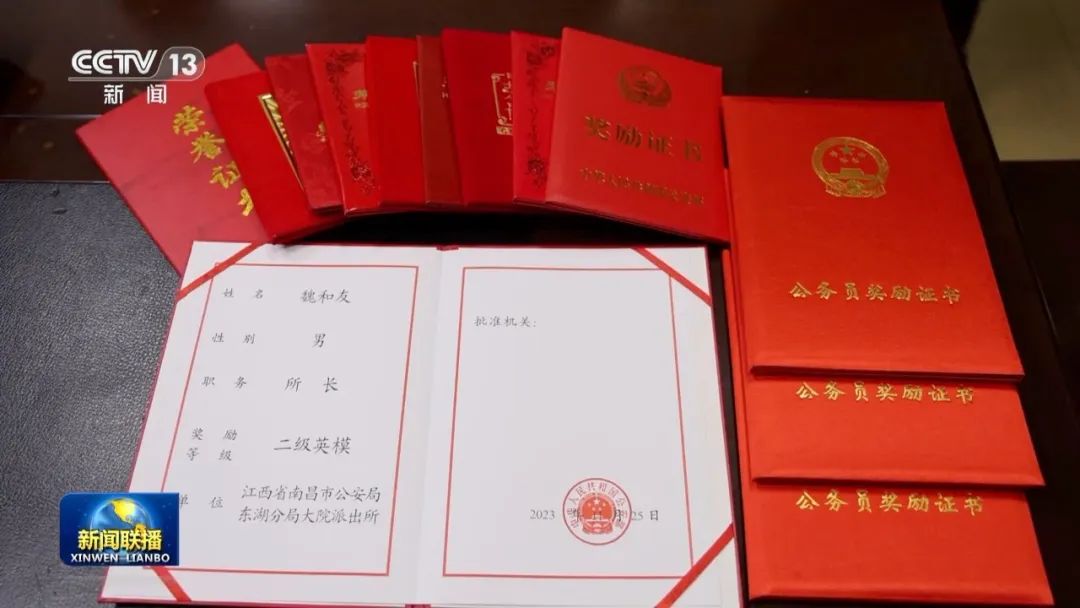 CCTV 13
新闻
荣誉证书
奖励证书
公务员奖励证书
公务员奖励证书
公务员奖励证书
姓名 魏和友
性别 男
职务 所长
奖励
等级 二级英模
单位 江西省南昌市公安局
东湖分局大院派出所
批准机关:
2023 年 月 25 日
新闻联播
XINWEN-LIANBO